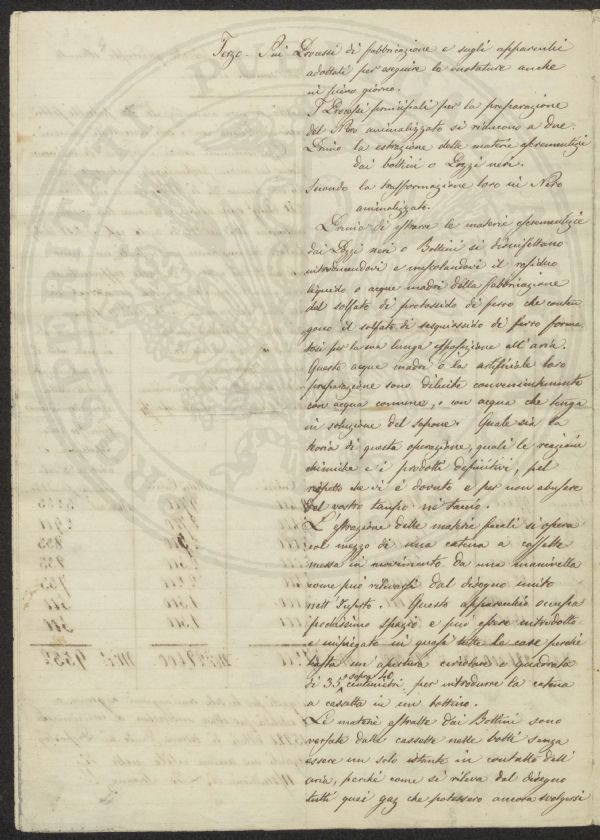 Terzo - Sui Processi di fabbricazione e sugli apparenchi
adottati per eseguire le vuotature anche
in pieno giorno.
I Processi principali per la preparazione
del Nero animalizzato si riducono a due.
Primo la estrazione delle materie escrementizie
dai bottini o Pozzi neri.
Secondo la trasformazione loro in Nero
animalizzato.
Prima di estrarre le materie escrementizie
dai Pozzi neri o Bottini si disinfettano
introducendovi e mescolandovi il residuo
liquido o acque madri della fabbricazione
del solfato di protossido di ferro che conten
gono il solfato di sesquiossido di ferro forma
tosi per la sua lunga esposizione all'aria.
Queste acque madri o la artificiale loro
preparazione sono diluite convenientemente
con acqua comune, o con acqua che tenga
in soluzione del sapone. Quale sia la
teoria di questa operazione, quali le reazioni
chimiche e i prodotti definitivi, pel
rispetto che vi è dovuto e per non abusare
del vostro tempo mi taccio.
L'estrazione delle materie fecali si opera
col mezzo di una catena a cassette
messa in movimento da una manovella
come può rilevarsi dal disegno unito
nell' Questo apparecchio occupa
pochissimo spazio e può essere introdotto
e impiegato in quasi tutte le case perchè
basta un apertura circolare o quadrata
di 35 sopra 40 centimetri per introdurre la catena
a cassetta in un bottino.
Le materie estratte dai Bottini sono
versate dalle cassette nelle botti senza
essere un solo istante in contatto dell'
aria, perchè come si rileva dal disegno
tutti quei gaz che potessero ancora svolgersi